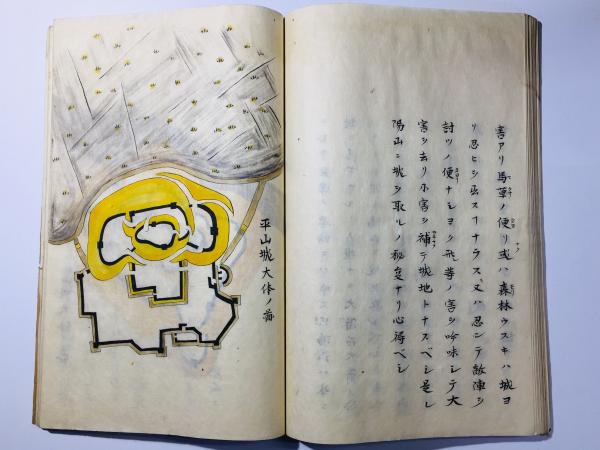 害アリ馬草ノ便リ或ハ森林ウスキハ城ヨ
リ忍ヒシ出スナラス又ハ忍ンテ敵陣シ
討ツノ便ナシヨク我等ノ害シ吟味シテ大
害シ去リ小害シ補テ城地トナスベシ是レ
陽山ニ城シ取ルノ秘定ナリ心得ベシ
平山城大体ノ図